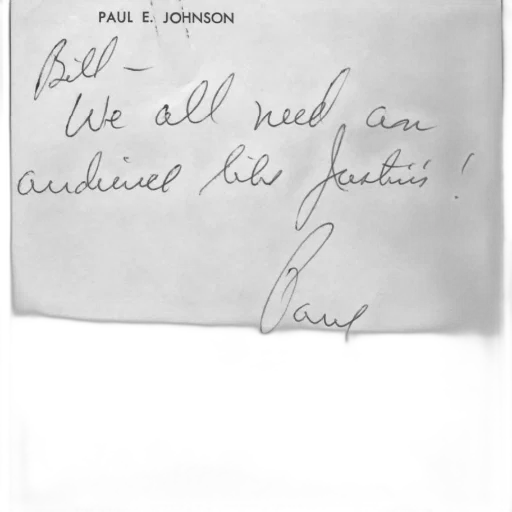 PAUL E. JOHNSON
Bill –
We all need an
audience like Justin's!
Paul